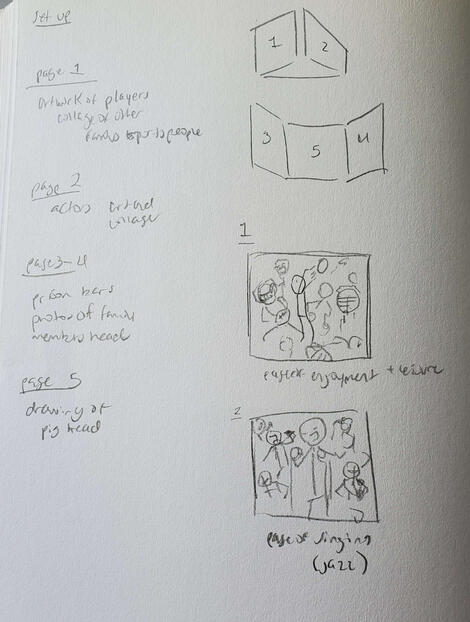 set up
page 1
artwork of players
collage of other
famous sports people
page 2
actors art and
collage
page 3-4
prison bars
photos of family
members head
page 5
drawing of
pig head
1
2
3
5
4
1
page of enjoyment +
2
page of singing
(jazz)